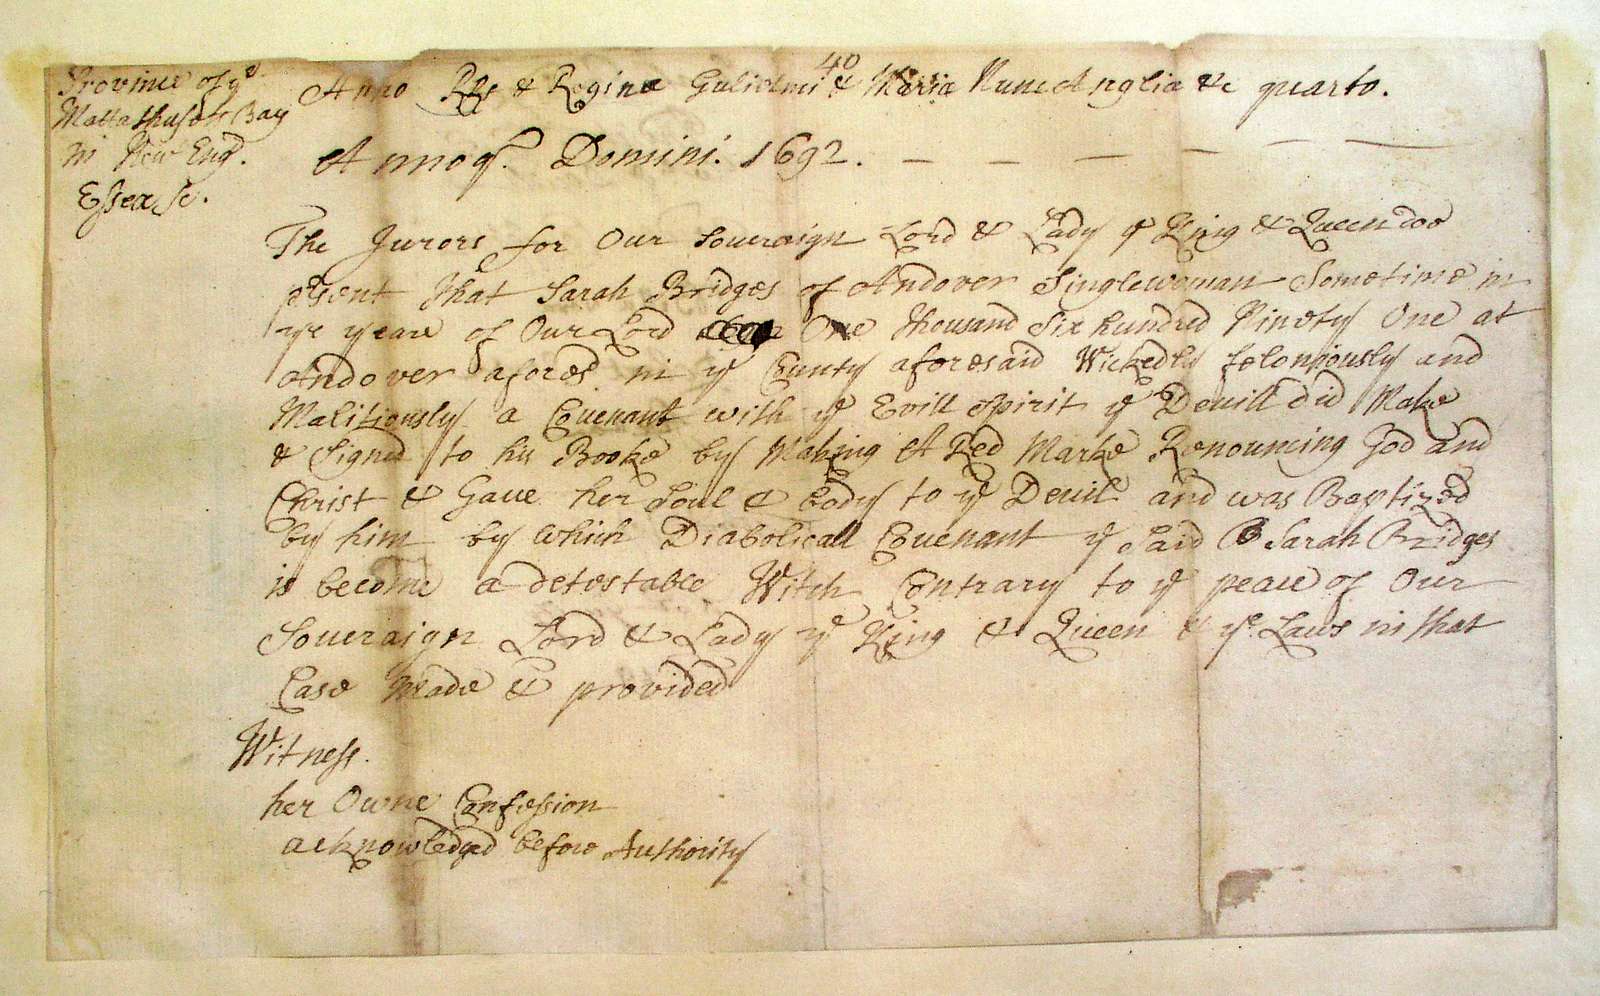 Province of ye
Mattathusets Bay
in New Engd.
Essex Sc.
40
Anno RRs & Reginæ Gulielmi & Mariæ Nunc Angliæ &c quarto.
Annoqe. Domini. 1692. — — — — — —
The Jurors for Our Soueraign Lord & Lady ye King & Queen doe
prsent That Sarah Bridges of Andover Singlewoman Sometime in
ye yeare of Our Lord One Thousand Six hundred Ninety One at
Andover afores. in ye County aforesaid Wickedly feloniously and
Malitiously a Couenant with ye Evill Spirit ye Deuill did Make
& Signed to his Booke by Making A Red Marke Renouncing God and
Christ & Gaue her Soul & Body to ye Deuil and was Baptized
by him by which Diabolicall Couenant ye Said Sarah Bridges
is become a detestable Witch Contrary to ye peace of Our
Soueraign Lord & Lady ye King & Queen & ye Laws in that
Case Made & provided
Witness.
her Owne Confession
acknowledged before Authority